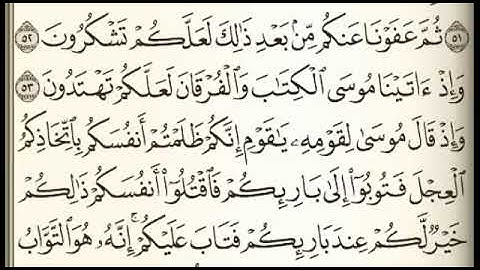 ٥١ ثُمَّ عَفَوْنَا عَنكُم مِّنۢ بَعْدِ ذَٰلِكَ لَعَلَّكُمْ تَشْكُرُونَ ٥٢
وَإِذْ ءَاتَيْنَا مُوسَى ٱلْكِتَٰبَ وَٱلْفُرْقَانَ لَعَلَّكُمْ تَهْتَدُونَ ٥٣
وَإِذْ قَالَ مُوسَىٰ لِقَوْمِهِۦ يَٰقَوْمِ إِنَّكُمْ ظَلَمْتُمْ أَنفُسَكُم بِٱتِّخَاذِكُمُ
ٱلْعِجْلَ فَتُوبُوٓا۟ إِلَىٰ بَارِئِكُمْ فَٱقْتُلُوٓا۟ أَنفُسَكُمْ ذَٰلِكُمْ
خَيْرٌ لَّكُمْ عِندَ بَارِئِكُمْ فَتَابَ عَلَيْكُمْ ۚ إِنَّهُۥ هُوَ ٱلتَّوَّابُ